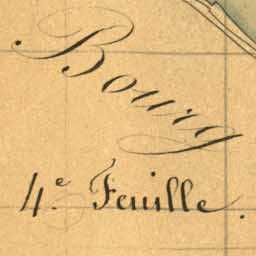 Bourg
4.e Feuille.